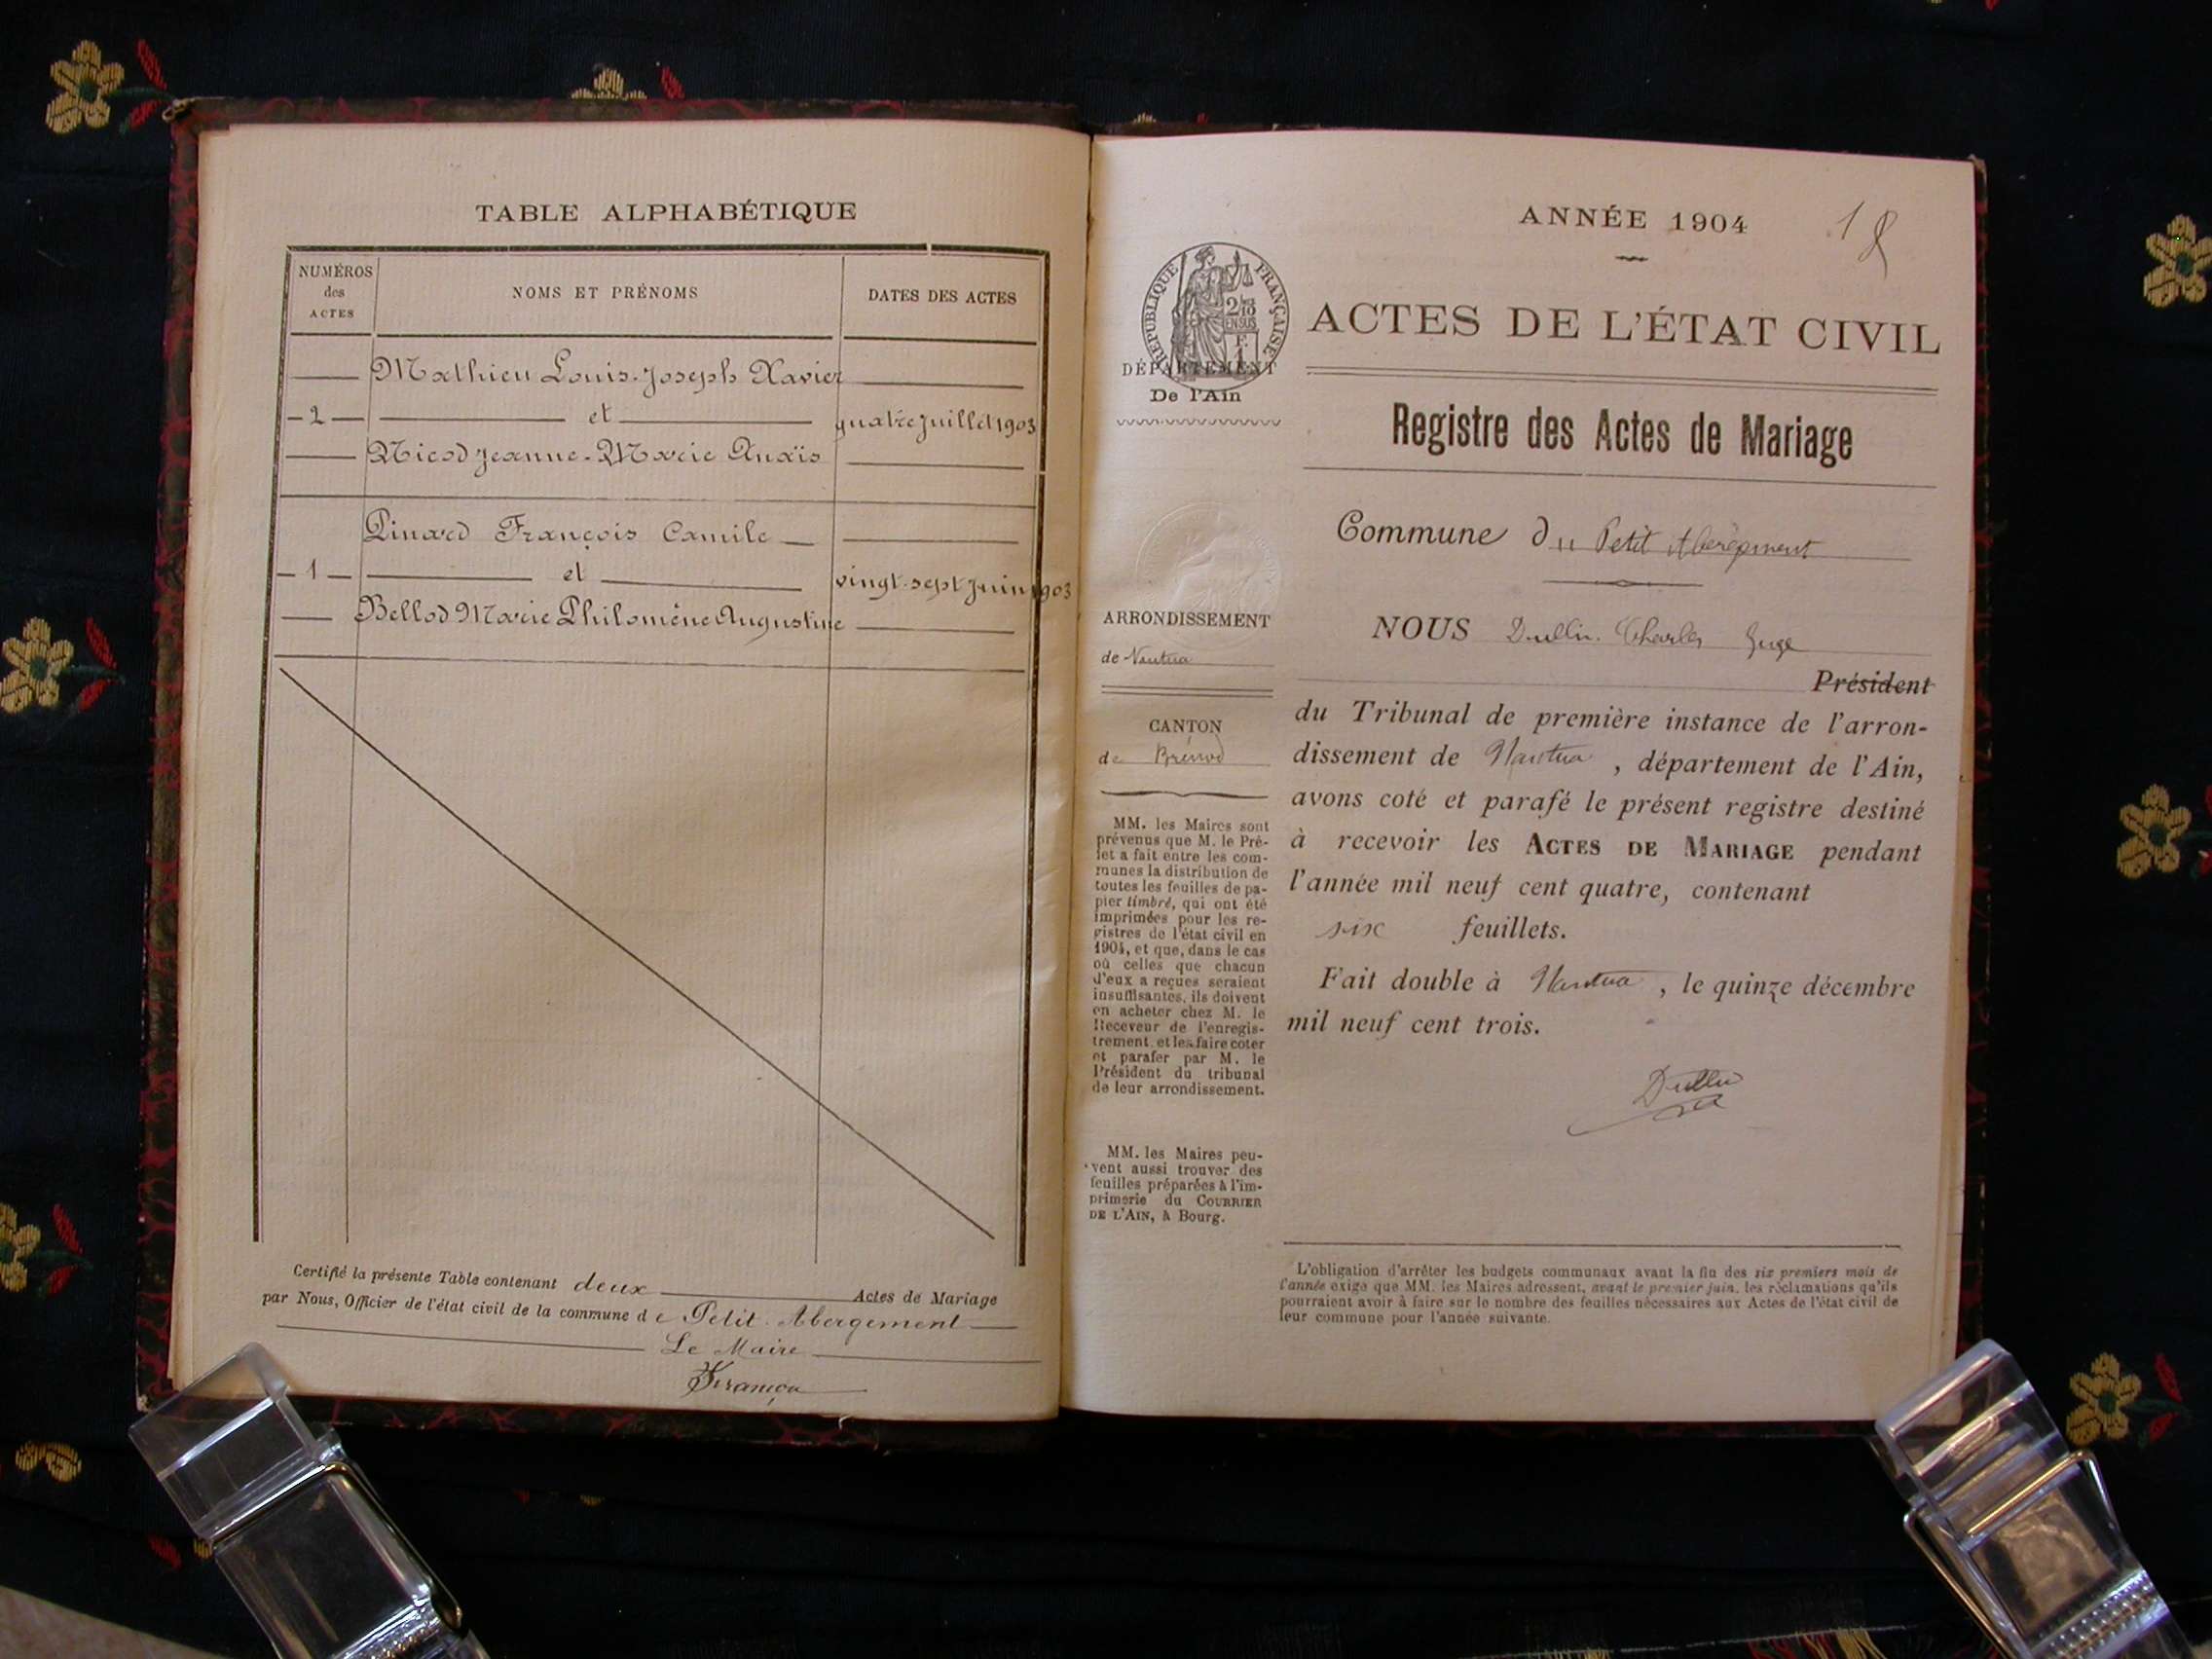 TABLE ALPHABÉTIQUE
NUMÉROS
des
ACTES
NOMS ET PRÉNOMS
DATES DES ACTES
Mathieu Louis-Joseph Xavier
2 et quatre juillet 1903
Nicod Jeanne-Marie Anaïs
Pinard François Camile
1 et vingt-sept juin 1903
Bellod Marie Philomène Augustine
Certifié la présente Table contenant deux Actes de Mariage
par Nous, Officier de l'état civil de la commune de Petit Abergement
Le Maire
ANNÉE 1904
1
RÉPUBLIQUE FRANÇAISE
2/10
EN SUS
F.
1
DÉPARTEMENT
De l'Ain
ACTES DE L'ÉTAT CIVIL
Registre des Actes de Mariage
Commune du Petit Abergement
ARRONDISSEMENT
de Nantua
CANTON
de Brénod
MM. les Maires sont
prévenus que M. le Pré-
fet a fait entre les com-
munes la distribution de
toutes les feuilles de pa-
pier timbré, qui ont été
imprimées pour les re-
gistres de l'état civil en
1904, et que, dans le cas
où celles que chacun
d'eux a reçues seraient
insuffisantes, ils doivent
en acheter chez M. le
Receveur de l'enregis-
trement, et les faire coter
et parafer par M. le
Président du tribunal
de leur arrondissement.
MM. les Maires peu-
vent aussi trouver des
feuilles préparées à l'im-
primerie du COURRIER
DE L'AIN, à Bourg.
NOUS Dullin Charles Juge
Président
du Tribunal de première instance de l'arron-
dissement de Nantua, département de l'Ain,
avons coté et parafé le présent registre destiné
à recevoir les ACTES DE MARIAGE pendant
l'année mil neuf cent quatre, contenant
six feuillets.
Fait double à Nantua, le quinze décembre
mil neuf cent trois.
Dullin
L'obligation d'arrêter les budgets communaux avant la fin des six premiers mois de
l'année exige que MM. les Maires adressent, avant le premier juin, les réclamations qu'ils
pourraient avoir à faire sur le nombre des feuilles nécessaires aux Actes de l'état civil de
leur commune pour l'année suivante.